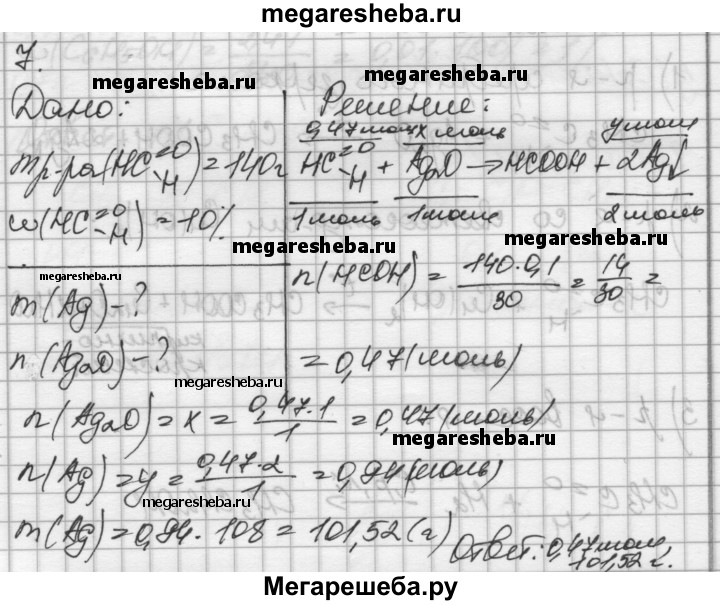 megaresheba.ru
7.
megaresheba.ru
megaresheba.ru
Дано:
Решение:
0,47моль x моль y моль
mр-ра(HC=O-H)=140г
HC=O-H + Ag2O → HCOOH + 2Ag↓
1 моль 1 моль 2 моль
w(HC=O-H)=10%
megaresheba.ru
megaresheba.ru
megaresheba.ru
n(HCOH) = 140·0,1/30 = 14/30 =
m(Ag)-?
n(Ag2O)-?
= 0,47(моль)
megaresheba.ru
n(Ag2O)=x= 0,47·1/1 = 0,47(моль)
megaresheba.ru
n(Ag)=y= 0,47·2/1 = 0,94(моль)
megaresheba.ru
m(Ag)=0,94·108=101,52(г)
Ответ: 0,47моль
101,52г.
Мегарешеба.ру